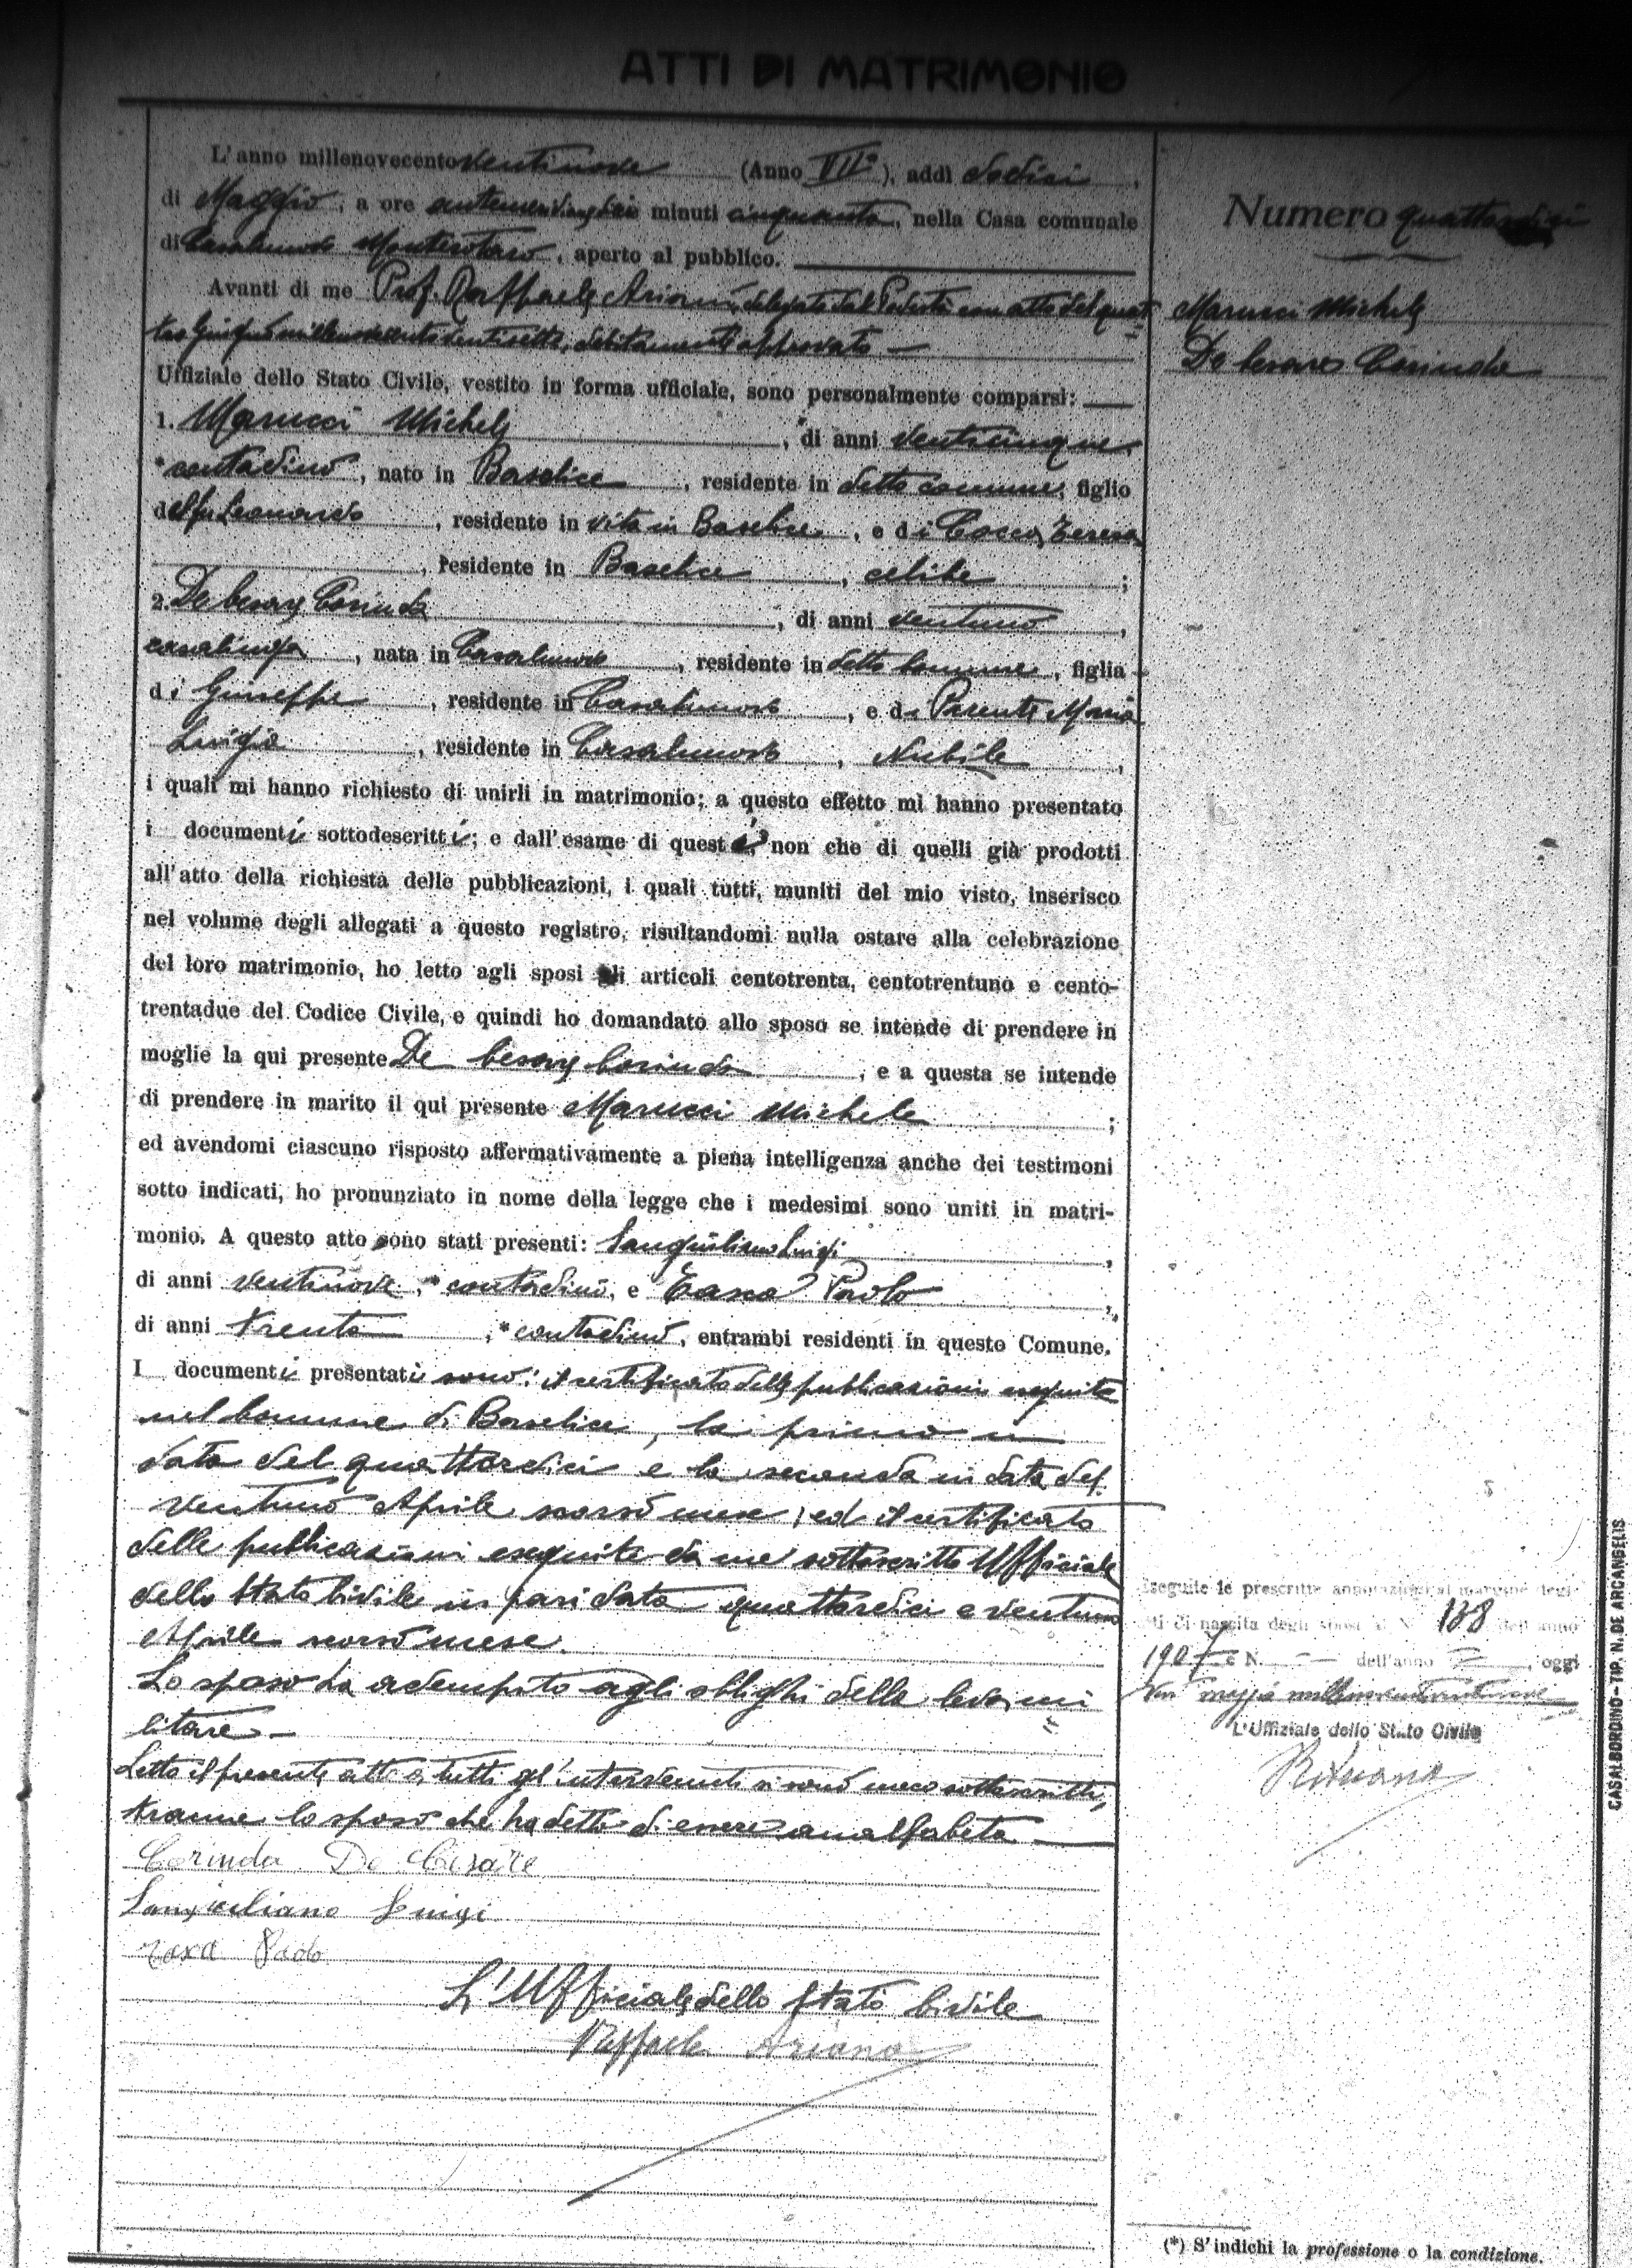 ATTI DI MATRIMONIO
L'anno millenovecento ventinove (Anno VII°), addì dodici,
di Maggio, a ore antemeridiane minuti cinquanta, nella Casa comunale
di Casalnuovo Monterotaro, aperto al pubblico.
Avanti di me Prof. Raffaele Ariano, delegato dal Podestà con atto del quat
tro Giugno millenovecentoventisette, debitamente approvato —
Uffiziale dello Stato Civile, vestito in forma ufficiale, sono personalmente comparsi:
1. Marucci Michele, di anni venticinque,
*contadino, nato in Baselice, residente in detto comune, figlio
del fu Leonardo, residente in vita in Baselice, e di Cocca Teresa
, residente in Baselice, celibe;
2. De Cesare Corinda, di anni ventuno,
casalinga, nata in Casalnuovo, residente in detto Comune, figlia
di Giuseppe, residente in Casalnuovo, e di Parente Maria
Luigia, residente in Casalnuovo, Nubile,
i quali mi hanno richiesto di unirli in matrimonio; a questo effetto mi hanno presentato
i documenti sottodescritti; e dall'esame di questi, non che di quelli già prodotti
all'atto della richiesta delle pubblicazioni, i quali tutti, muniti del mio visto, inserisco
nel volume degli allegati a questo registro, risultandomi nulla ostare alla celebrazione
del loro matrimonio, ho letto agli sposi gli articoli centotrenta, centotrentuno e cento-
trentadue del Codice Civile, e quindi ho domandato allo sposo se intende di prendere in
moglie la qui presente De Cesare Corinda, e a questa se intende
di prendere in marito il qui presente Marucci Michele;
ed avendomi ciascuno risposto affermativamente a piena intelligenza anche dei testimoni
sotto indicati, ho pronunziato in nome della legge che i medesimi sono uniti in matri-
monio. A questo atto sono stati presenti: Sanguiliano Luigi,
di anni ventinove, *contadino, e Tasca Paolo,
di anni trenta, *contadino, entrambi residenti in questo Comune.
I documenti presentati sono: il certificato delle pubblicazioni eseguite
nel Comune di Baselice, la prima in
data del quattordici e la seconda in data del
ventuno Aprile scorso mese; ed il certificato
delle pubblicazioni eseguite da me sottoscritto Ufficiale
dello Stato Civile in pari data quattordici e ventuno
Aprile scorso mese.
Lo sposo ha adempito agli obblighi della leva mi
litare —
Letto il presente atto a tutti gl'intervenuti si sono meco sottoscritti,
tranne lo sposo che ha detto di essere analfabeta —
Corinda De Cesare
Luigi
Paolo
L'Ufficiale dello Stato Civile
Raffaele Ariano
Numero quattordici
Marucci Michele
De Cesare Corinda
Eseguite le prescritte annotazioni al margine degli
atti di nascita degli sposi al N. 138 dell'anno
1907 e N. — dell'anno —, oggi
maggio millenovecentoventinove
L'Uffiziale dello Stato Civile
R. Ariano
CASALBORDINO - TIP. N. DE ARCANGELIS
(*) S'indichi la professione o la condizione.